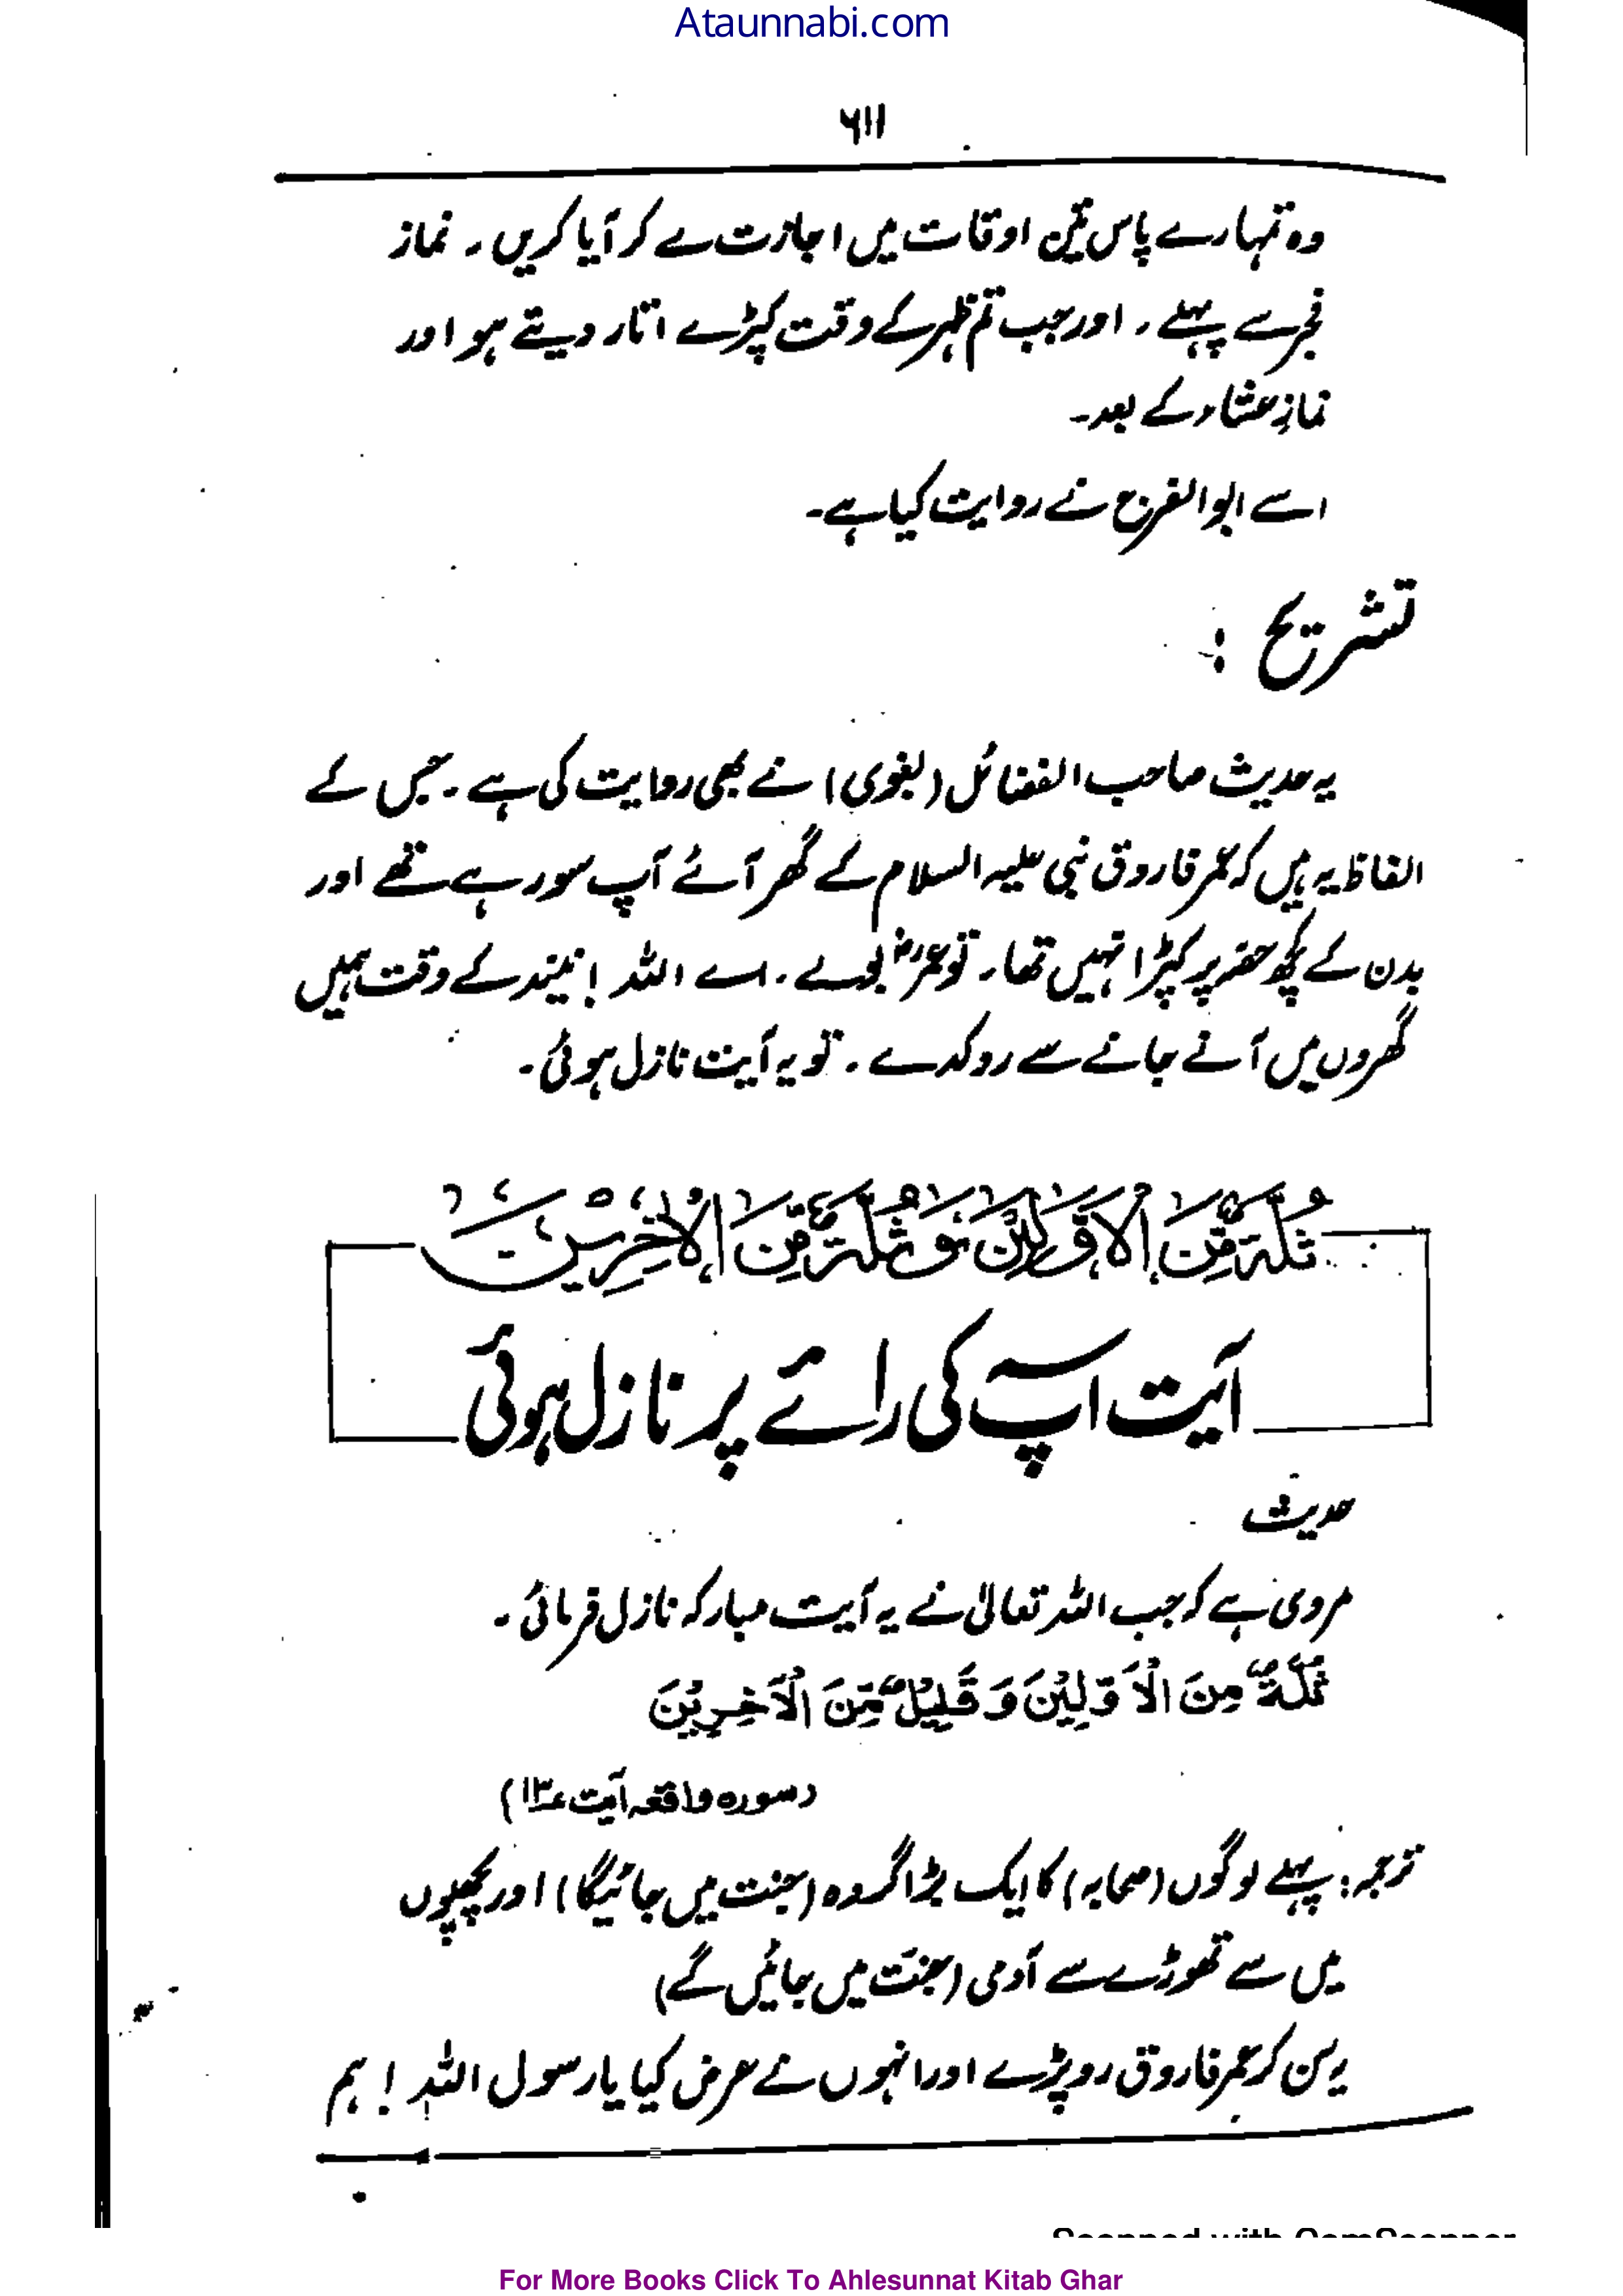 Ataunnabi.com
۶۱۱
وہ تمہارے پاس تین اوقات میں اجازت لے کر آیا کریں۔ نماز
فجر سے پہلے، اور جب تم ظہر کے وقت کپڑے اتار دیتے ہو اور
نمازِ عشاء کے بعد۔
اسے ابو الفرج نے روایت کیا ہے۔
تشریح :
یہ حدیث صاحب الفضائل (بغوی) نے بھی روایت کی ہے۔ جس کے
الفاظ یہ ہیں کہ عمر فاروق نبی علیہ السلام کے گھر آئے آپ سو رہے تھے اور
بدن کے کچھ حصہ پر کپڑا نہیں تھا۔ تو عمرؓ بولے۔ اے اللہ! نیند کے وقت ہمیں
گھروں میں آنے جانے سے روکدے۔ تو یہ آیت نازل ہوئی۔
ثُلَّةٌ مِّنَ الْاَوَّلِیْنَ وَ ثُلَّةٌ مِّنَ الْاٰخِرِیْنَ
آیت آپ کی رائے پر نازل ہوئی
حدیث
مروی ہے کہ جب اللہ تعالیٰ نے یہ آیت مبارکہ نازل فرمائی۔
ثُلَّةٌ مِنَ الْاَوَّلِیْنَ وَ قَلِیْلٌ مِّنَ الْاٰخِرِیْنَ
(سورہ واقعہ آیت ۱۳)
ترجمہ: پہلے لوگوں (صحابہ) کا ایک بڑا گروہ (جنت میں جائیگا) اور پچھلوں
میں سے تھوڑے سے آدمی (جنت میں جائیں گے)
یہ سن کر عمر فاروق رو پڑے اور انہوں نے عرض کیا یا رسول اللہ! ہم
Scanned with CamScanner
For More Books Click To Ahlesunnat Kitab Ghar